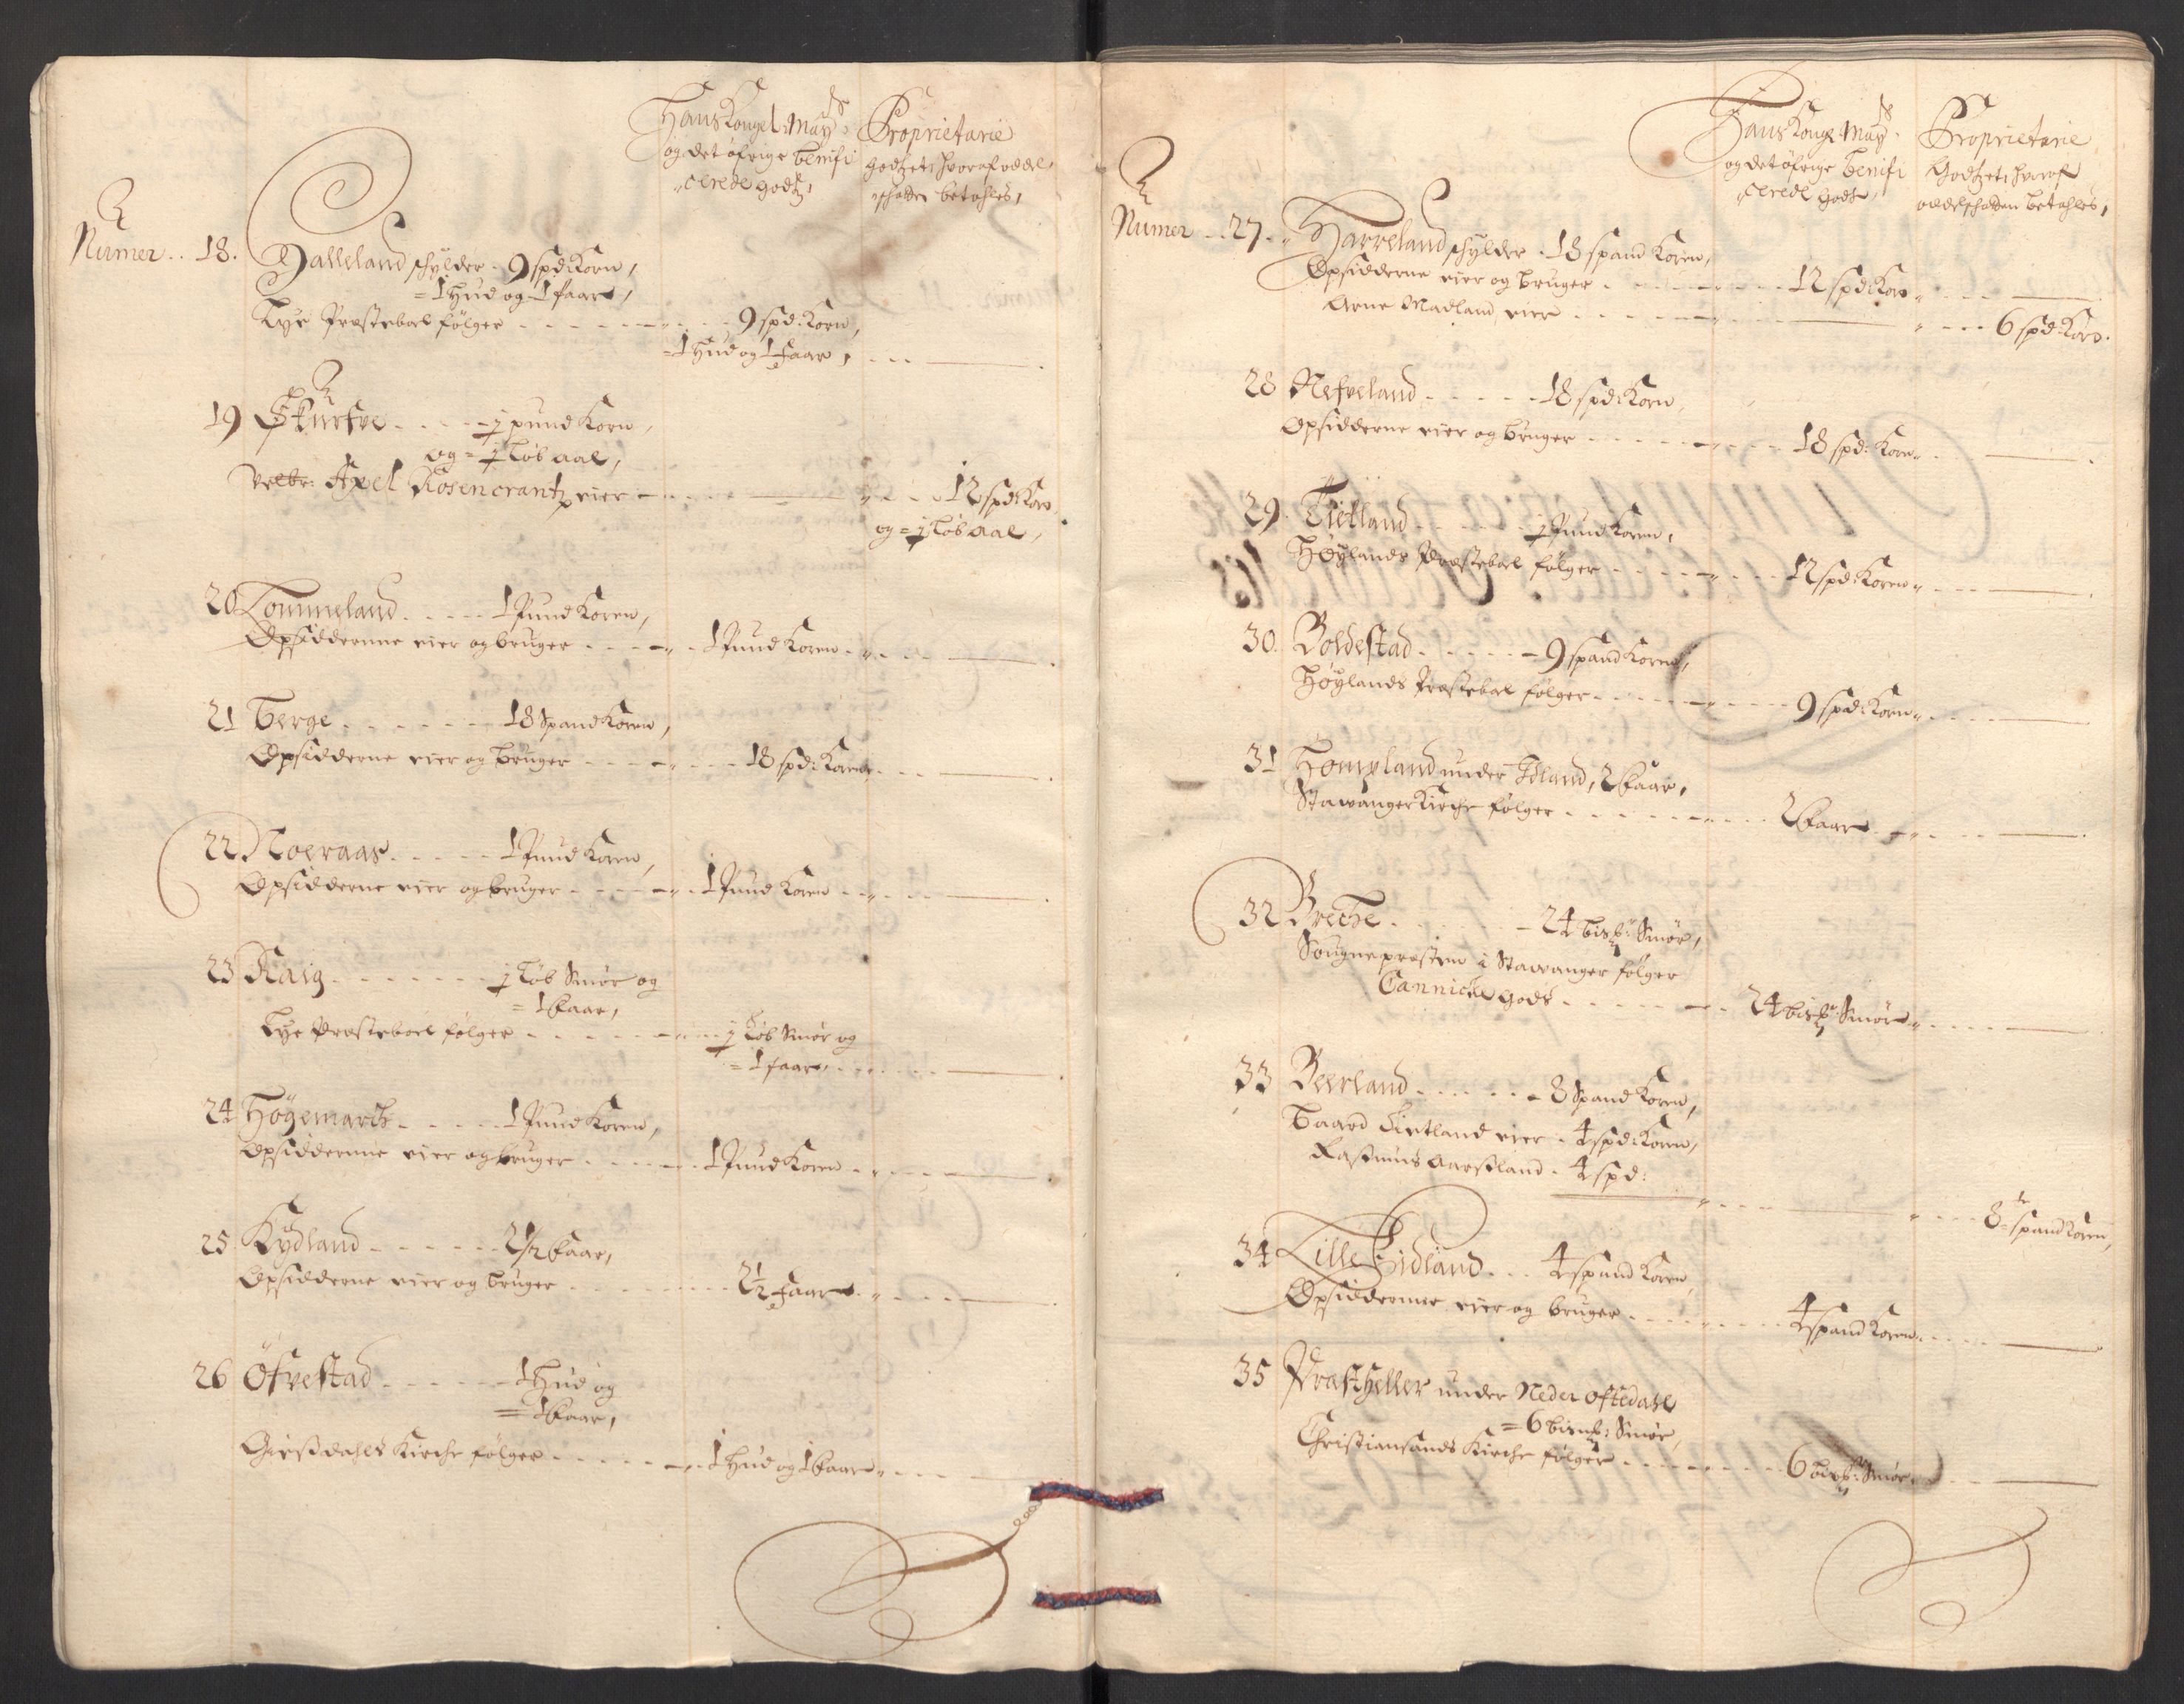 Hans Kongel: Mayts
og det öfrige benifi
cerede godtz,
Proprietarie
godtzet hvoraf oddel
schatten betahles,
Numer .. 18. Halleland schylder . 9 spd: Korn,
= 1 Hud og 1 faar,
Lye Præstebol følger - - - 9 spd: Korn,
= 1 Hud og 1 faar,
19 Skurfve - - - j pund Korn,
og = j Löb aal,
Velbr: Axel Rosencrantz eier - - - 12 spd: Korn
og = j Löb aal,
20 Tommeland - - - 1 Pund Koren,
Opsidderne eier og bruger - - - 1 Pund Koren
21 Berge - - - 18 Spand Koren,
Opsidderne eier og bruger - - - 18 spd: Koren
22 Noeraas - - - 1 Pund Koren,
Opsidderne eier og bruger - - - 1 Pund Koren
23 Raig - - - j Löb Smör og
= 1 faar,
Lye Præstebol følger - - - j Löb Smör og
= 1 faar,
24 Högemarck - - - 1 Pund Koren,
Opsidderne eier og bruger - - - 1 Pund Koren
25 Kydland - - - 2 1/2 faar,
Opsidderne eier og bruger - - - 2 1/2 faar
26 Öfvestad - - - 1 Hud og
= 1 faar,
Giesdahls Kirche følger - - - 1 Hud og 1 faar
Hans Konge: Mayts
og det öfrige benifi
cerede gods,
Proprietarie
Godtzet hvoraf
oddelschatten betahles,
Numer .. 27. Harreland schylder . 18 spand Koren,
Opsidderne eier og bruger - - - 12 spd: Korn
Arne Madland eier - - - 6 spd: Korn.
28 Nefveland - - - 18 spd: Korn,
Opsidderne eier og bruger - - - 18 spd: Korn
29. Tietland - - - j Pund Koren,
Höylands Præstebol følger - - - 12 spd: Koren
30. Boldestad - - - 9 spand Koren,
Höylands Præstebol følger - - - 9 spd: Korn
31 Homeland under Idland, 2 faar,
Stawanger Kirche følger - - - 2 faar
32 Breche - - - 24 bispd: Smör,
Sougnepræsten i Stawanger følger
Cannicke gods - - - 24 bispd: Smör
33 Beerland - - - 8 Spand Koren,
Baard Eietland eier . 4 spd: Koren,
Rasmus Aarsland . 4 spd:
8 spand Koren,
34 Lille Eidland - - - 4 spand Koren,
Opsidderne eier og bruger - - - 4 spand Koren
35 Præstheller under Neder Oftedahl
= 6 bismpd: Smör,
Christiansands Kirche følger - - - 6 bispd: Smör